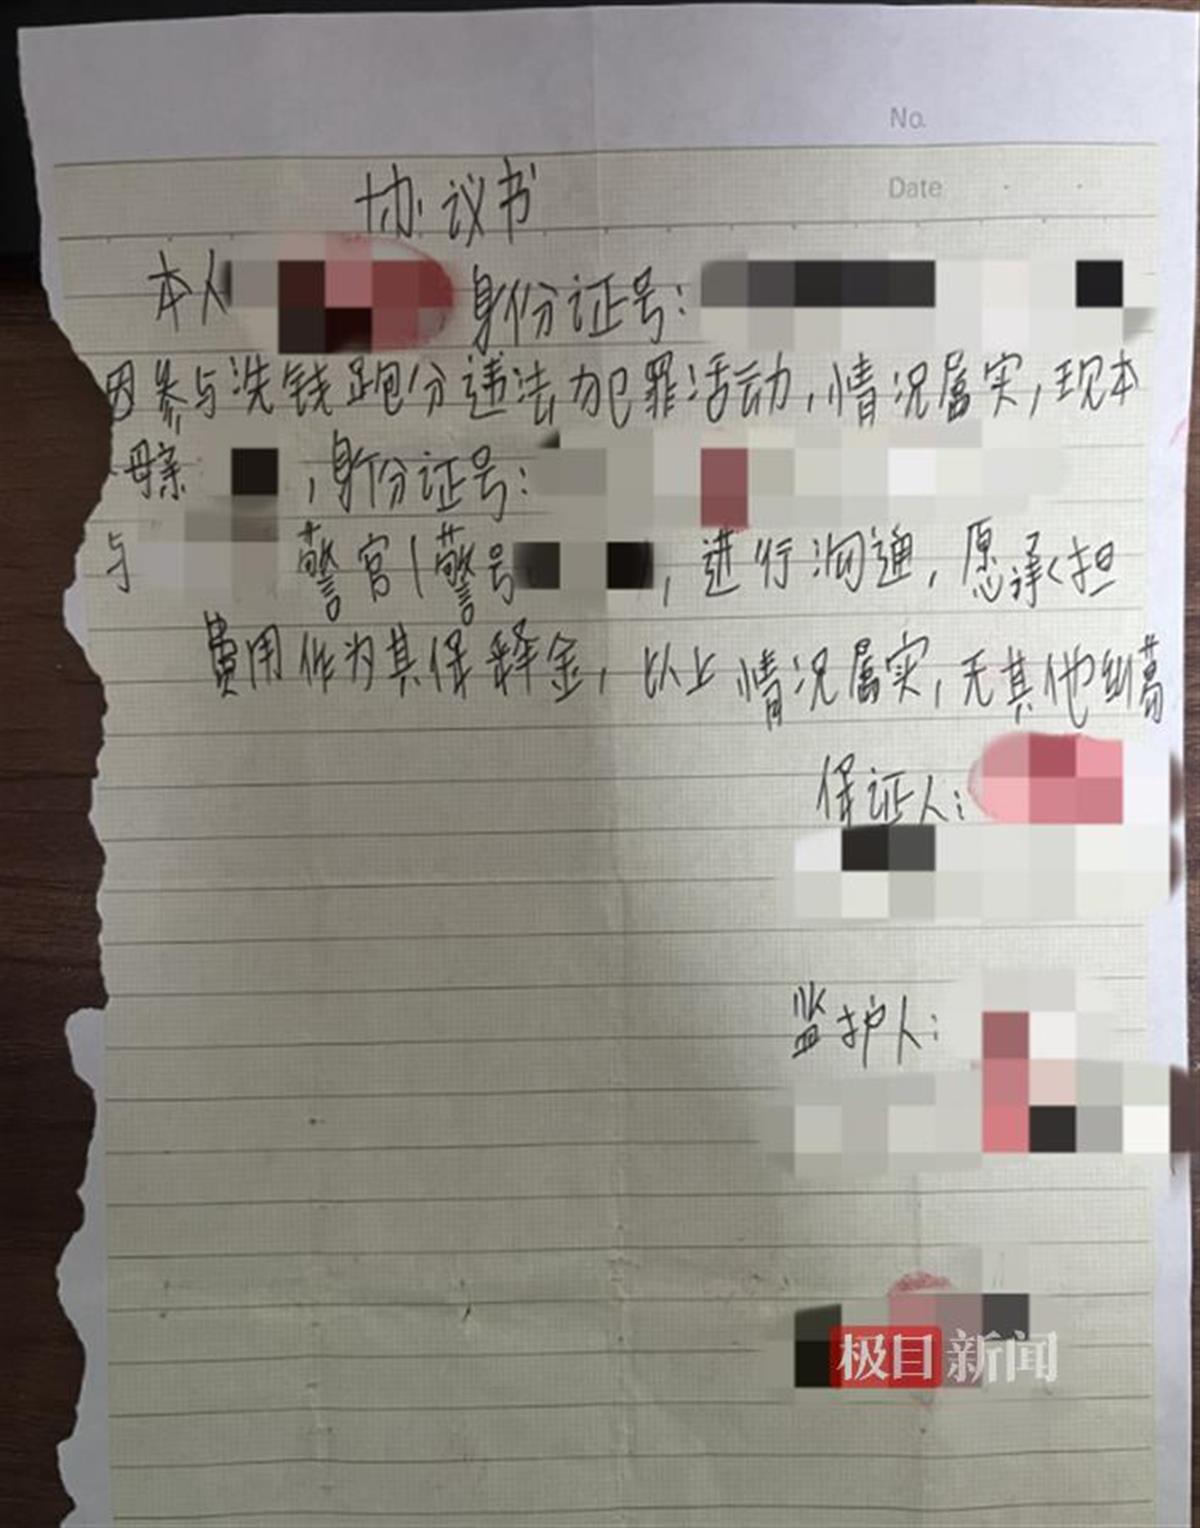 No.
Date
协议书
本人 身份证号:
因参与洗钱跑分违法犯罪活动,情况属实,现本
母亲 ,身份证号:
与 警官(警号 ,进行沟通,愿承担
费用作为其保释金,以上情况属实,无其他纠葛
保证人:
监护人:
极目新闻